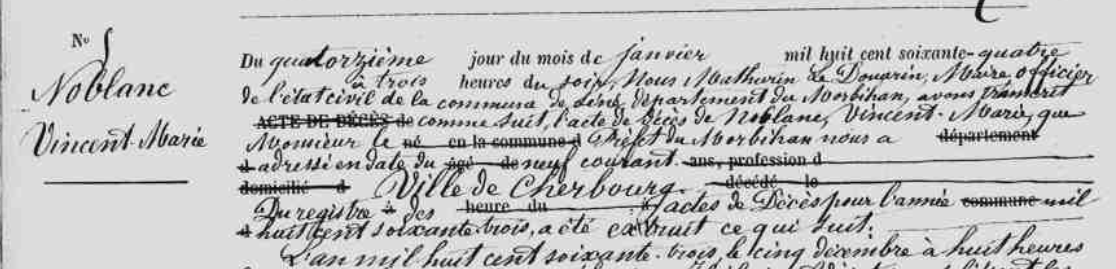 N° 5
Noblanc
Vincent-Marie
Du quatorzième jour du mois de janvier mil huit cent soixante-quatre
à trois heures du soir, Nous Mathurin Le Douarin, Maire officier
de l'état civil de la commune de Séné, département du Morbihan, avons transcrit
ACTE DE DÉCÈS de comme suit, l'acte de décès de Noblanc, Vincent-Marie, que
Monsieur le né en la commune d Préfet du Morbihan nous a département
d adressé en date du âgé de neuf courant. ans, profession d
domicilié d Ville de Cherbourg. décédé le
Du registre à des heure du actes de Décès pour l'année commune mil
huit cent soixante-trois, a été extrait ce qui suit:
L'an mil huit cent soixante-trois, le cinq décembre à huit heures